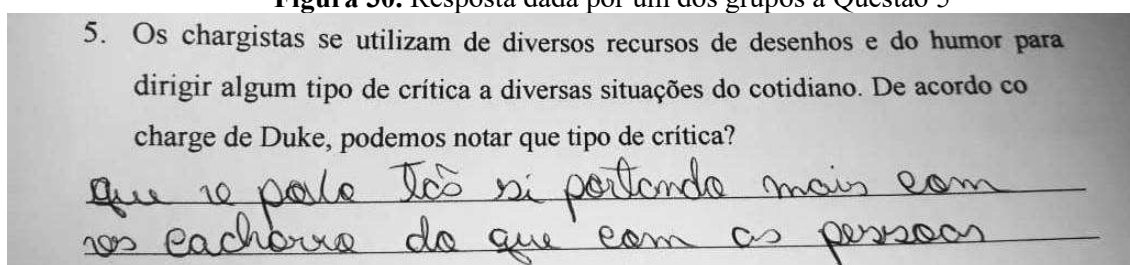 Figura 30. Resposta dada por um dos grupos à Questão 5
5. Os chargistas se utilizam de diversos recursos de desenhos e do humor para
dirigir algum tipo de crítica a diversas situações do cotidiano. De acordo co
charge de Duke, podemos notar que tipo de crítica?
que
portando mais com
cachorro do que com as pessoas